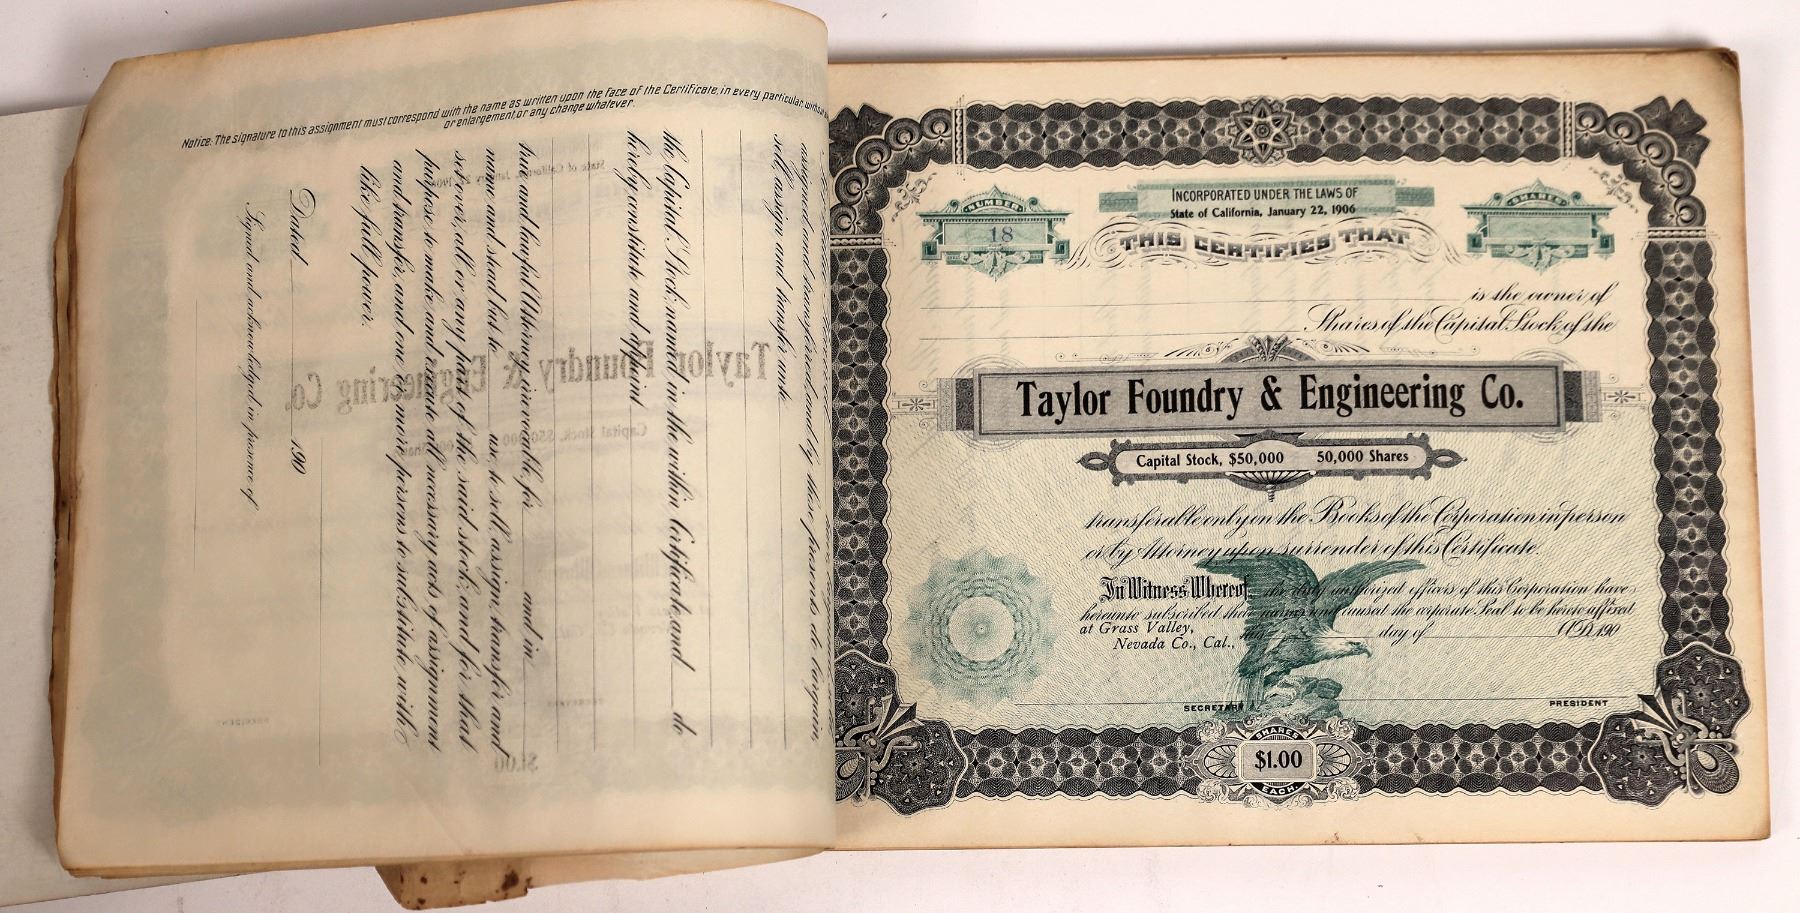 Notice: The signature to this assignment must correspond with the name as written upon the face of the Certificate, in every particular
or enlargement, or any change whatever.
assigned and transferred and by these presents do bargain,
sell, assign and transfer unto
the Capital Stock named in the within Certificate, and do
hereby constitute and appoint
true and lawful Attorney, irrevocable, for and in
name and stead but to use, to sell, assign, transfer and
set over, all or any part of the said stock; and for that
purpose to make and execute all necessary acts of assignment
and transfer, and one or more persons to substitute with
like full power.
Dated 190
Signed and acknowledged in presence of
NUMBER
18
INCORPORATED UNDER THE LAWS OF
State of California, January 22, 1906
SHARES
THIS CERTIFIES THAT
is the owner of
Shares of the Capital Stock of the
Taylor Foundry & Engineering Co.
Capital Stock, $50,000 50,000 Shares
transferable only on the Books of the Corporation in person
or by Attorney upon surrender of this Certificate.
In Witness Whereof, the duly authorized officers of this Corporation have
hereunto subscribed their names and caused the corporate Seal to be hereto affixed
at Grass Valley,
Nevada Co., Cal., this day of A.D. 190
SECRETARY PRESIDENT
SHARES
$1.00
EACH